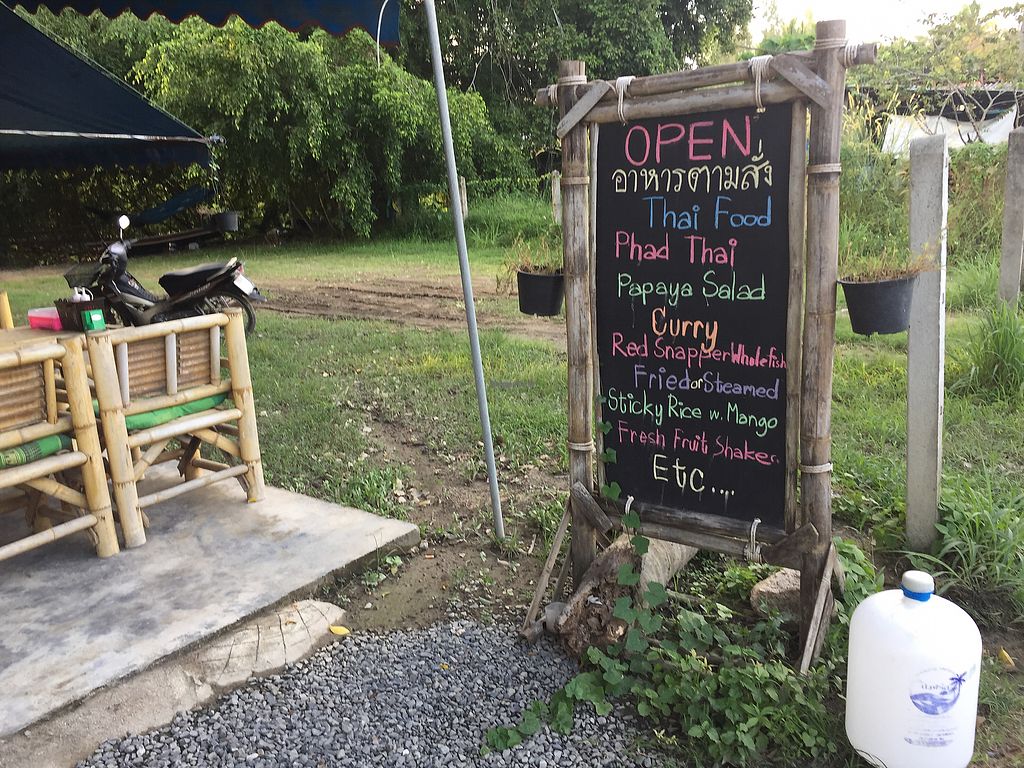 OPEN
อาหารตามสั่ง
Thai Food
Phad Thai
Papaya Salad
Curry
Red Snapper Whole fish
Fried or Steamed
Sticky Rice w. Mango
Fresh Fruit Shakes
Etc...